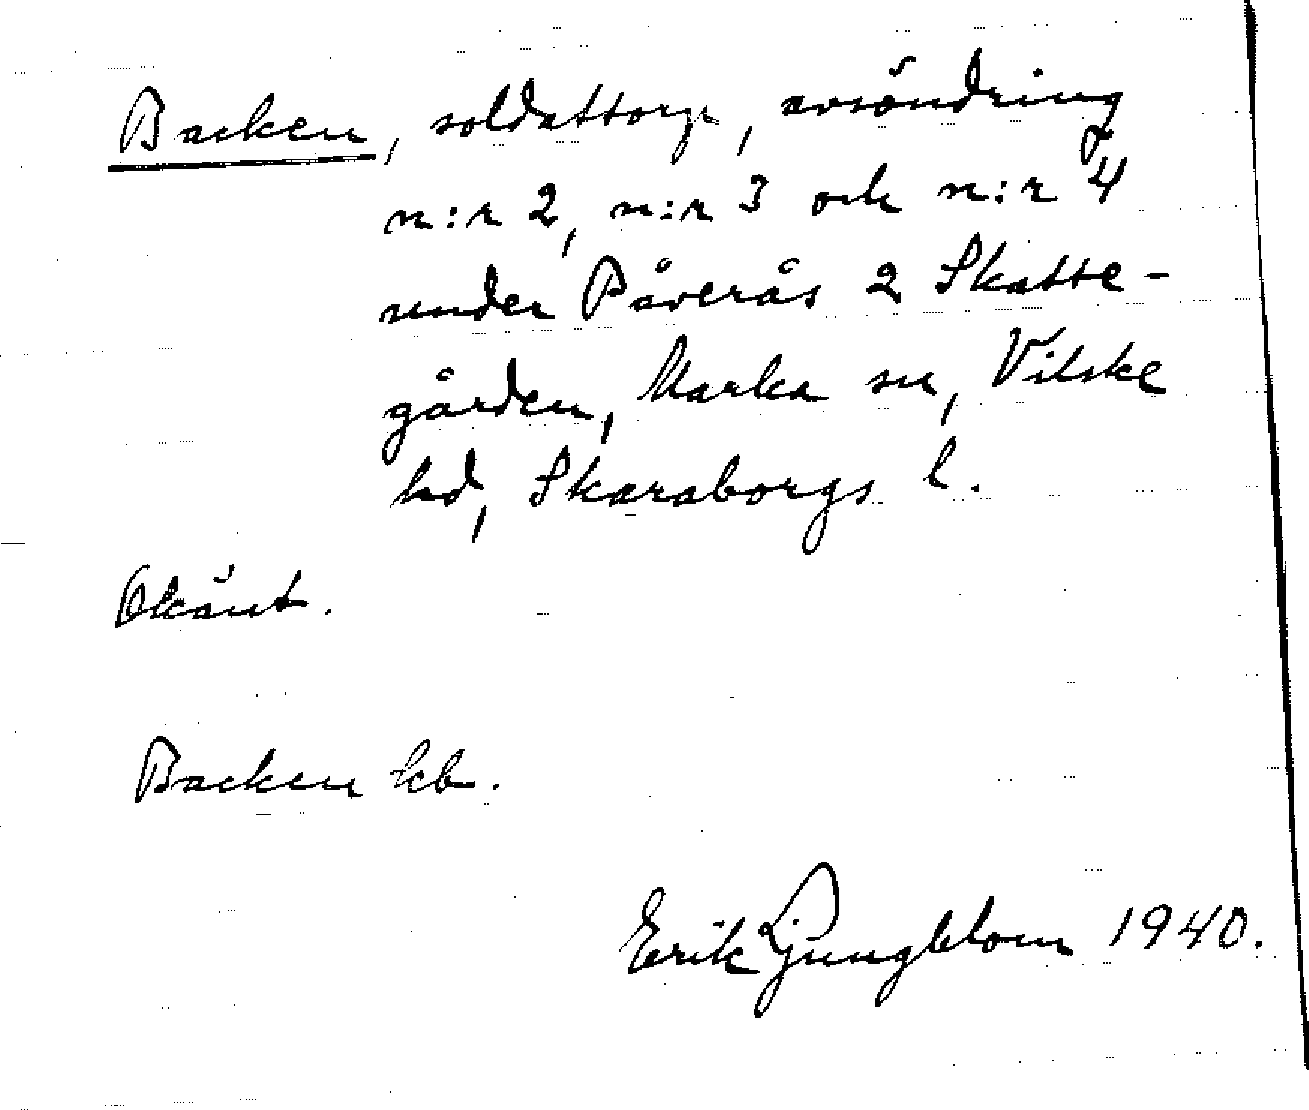 Backen, soldattorp, avsöndring
n:r 2, n:r 3 och n:r 4
under Påverås 2 Skatte-
gården, Marka sn, Vilske
hd, Skaraborgs l.
Okänt.
Backen kb.
Erik Ljungblom 1940.